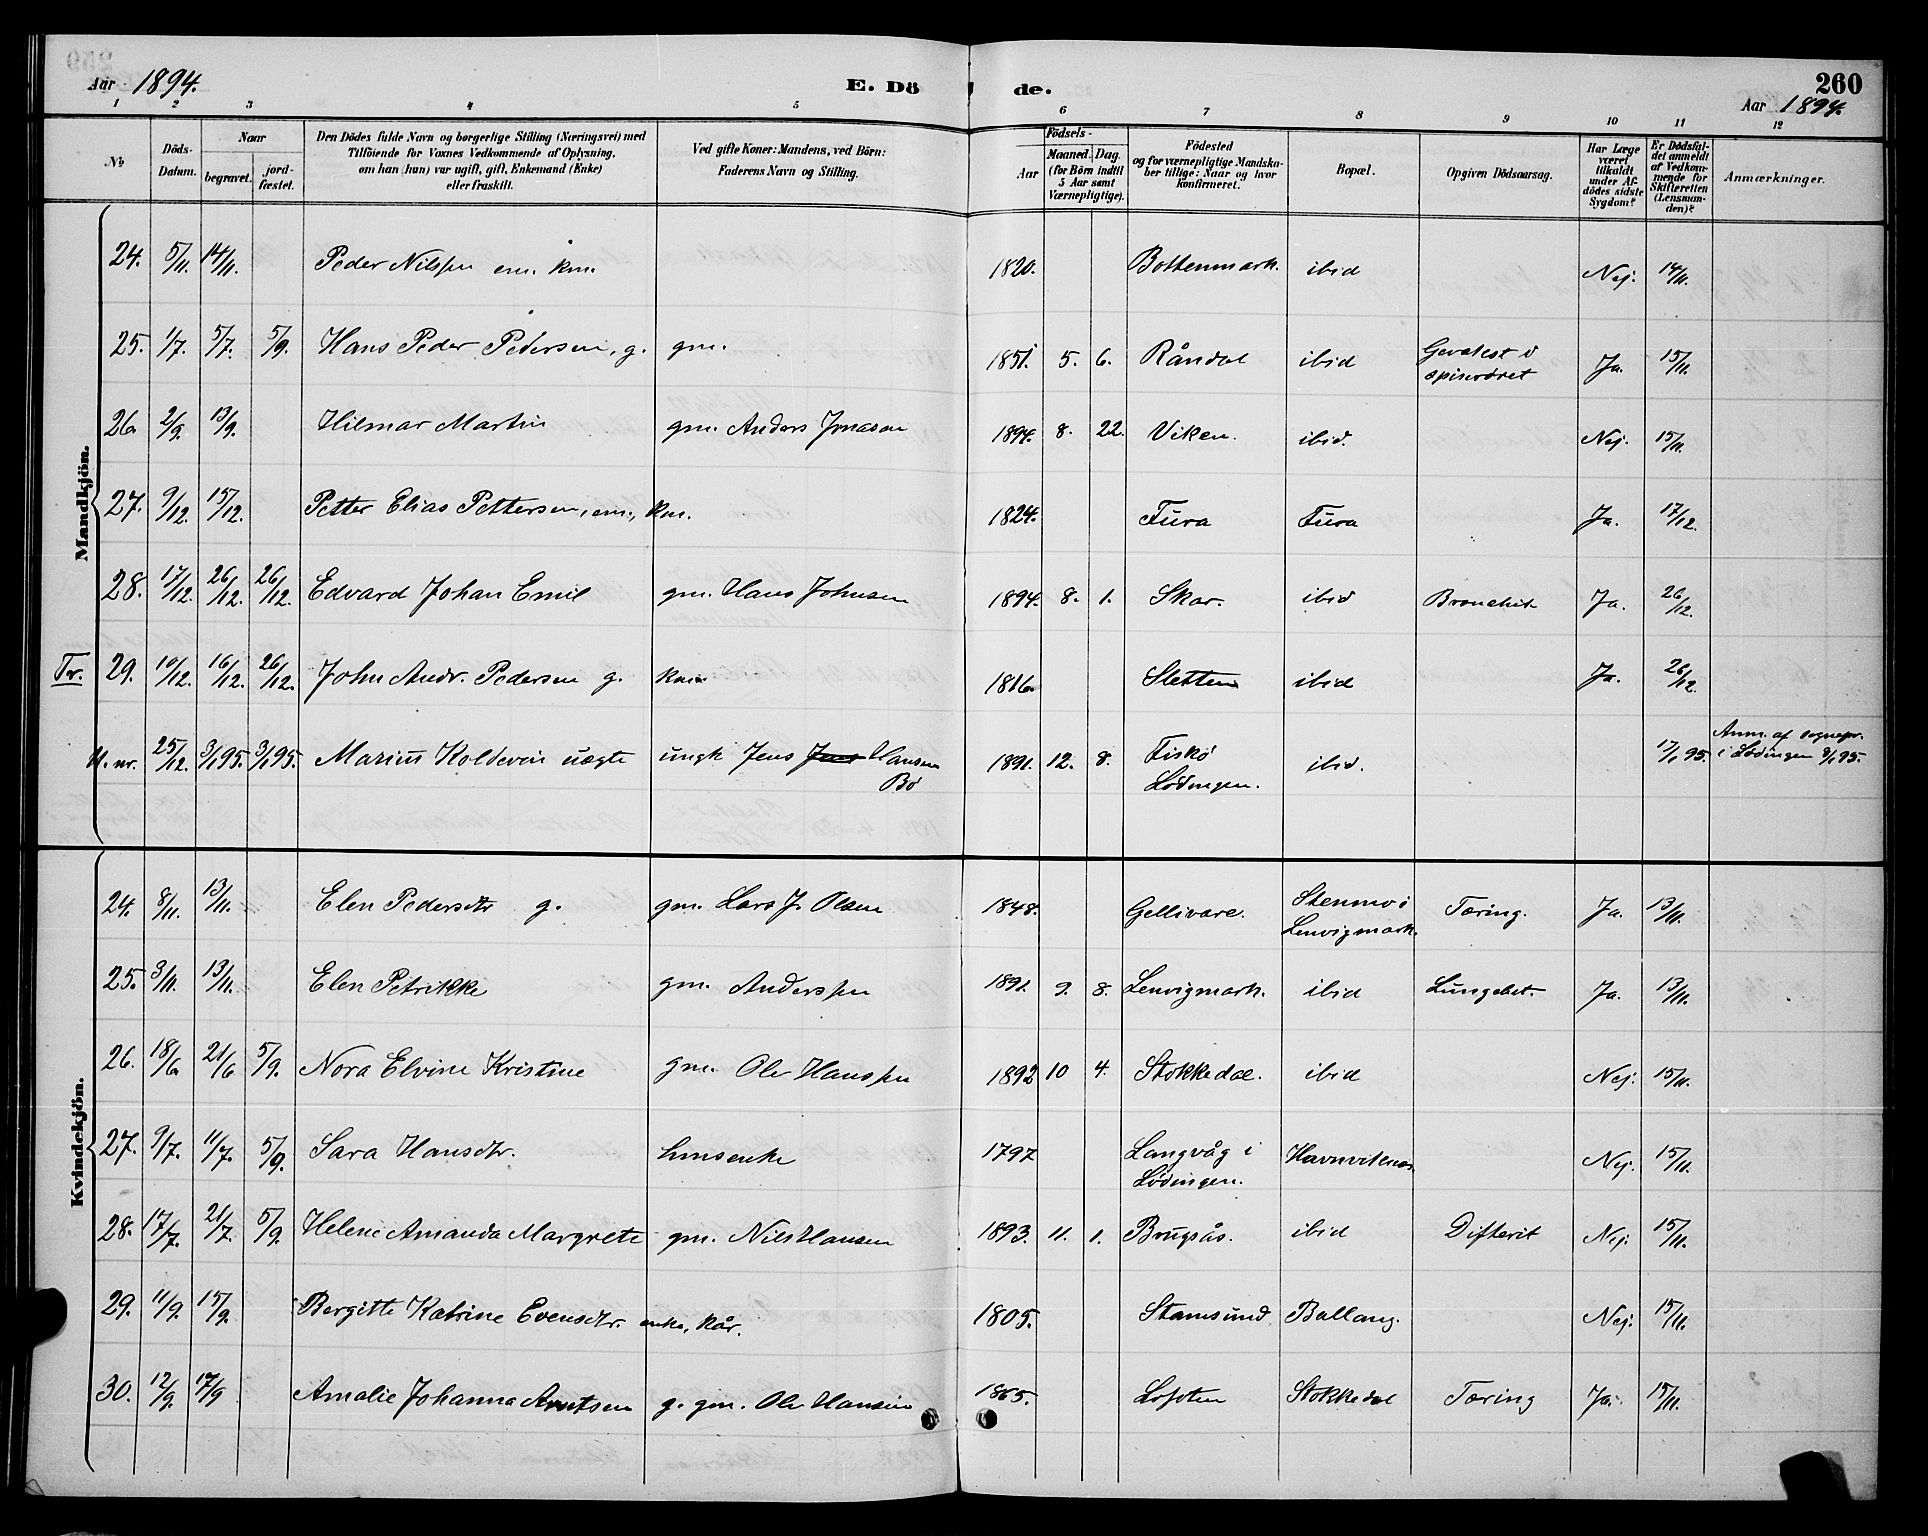 Aar 1894. E. Dö de. 260
Aar 1894.
1 2 3 4 5 6 7 8 9 10 11 12
No
Döds-Datum.
Naar
begravet.
jord-fæstet.
Den Dödes fulde Navn og borgerlige Stilling (Næringsvei) med
Tilföiende for Voxnes Vedkommende af Oplysning,
om han (hun) var ugift, gift, Enkemand (Enke)
eller fraskilt.
Ved gifte Koner: Mandens, ved Börn:
Faderens Navn og Stilling.
Födsels-
Aar
Maaned. Dag.
(for Börn indtil
5 Aar samt
Værnepligtige).
Födested
og for værnepligtige Mandska-
ber tillige: Naar og hvor
konfirmeret.
Bopæl.
Opgiven Dödsaarsag.
Har Læge
været
tilkaldt
under Af-
dödes sidste
Sygdom?
Er Dödsfal-
det anmeldt
af Vedkom-
mende for
Skifteretten
(Lensman-
den)?
Anmærkninger.
Mandkjön.
24. 5/11. 14/11. Peder Nilssen em. km. 1820. Bottenmark. ibid Nej. 14/11.
25. 1/7. 5/7. 5/9. Hans Peder Pedersen, g. gm. 1851. 5. 6. Råndal ibid Gevækst i
spiserøret Ja. 15/11.
26. 2/9. 13/9. Hilmar Martin gm. Anders Jonasen 1894. 8. 22. Viken. ibid. Nej. 15/11.
27. 9/12. 15/12. Petter Elias Pettersen, em., km. 1824. Fura Fura Ja. 17/12.
28. 17/12. 26/12. 26/12. Edvard Johan Emil gm. Hans Johnsen 1894. 8. 1. Skar. ibid Bronchit Ja. 26/12.
Tr. 29. 10/12. 16/12. 26/12. John Andr. Pedersen g. km. 1816. Sletten ibid Ja. 26/12.
U. nr. 25/12. 3/1 95. 3/1 95. Marius Koldevin uægte ungk Jens Jens Hansen
Bø 1891. 12. 8. Fiskø
Lødingen. ibid. 17/1 95. Anm. af sognepr.
i Lødingen 3/1 95.
Kvindekjön.
24. 8/11. 13/11. Elen Pedersdtr g. gm. Lars J. Olsen 1848. Gellivare. Stenmo i
Lenvigmark. Tæring. Ja. 13/11.
25. 3/11. 13/11. Elen Petrikke gm. Anderssen 1891. 9. 8. Lenvigmark. ibid Lungebet. Ja. 13/11.
26. 18/6. 21/6 5/9. Nora Elvine Kristine gm. Ole Hanssen 1892 10 4. Stokkedal. ibid Nej. 15/11.
27. 9/7. 11/7. 5/9. Sara Hansdtr. hmsenke 1797 Langvåg i
Lødingen. Havnviknes Nej. 15/11.
28. 17/7. 21/7. 5/9. Helene Amanda Margrete gm. Nils Hansen 1893. 11. 1. Brugsås. ibid Difterit Nej. 15/11.
29. 11/9. 15/9. Bergitte Katrine Evensdtr. enke, kår. 1805. Stamsund Ballang. Nej. 15/11.
30. 12/9. 17/9 Amalie Johanna Arntsen g. gm. Ole Hansen 1865. Lofoten Stokkedal Tæring Ja. 15/11.